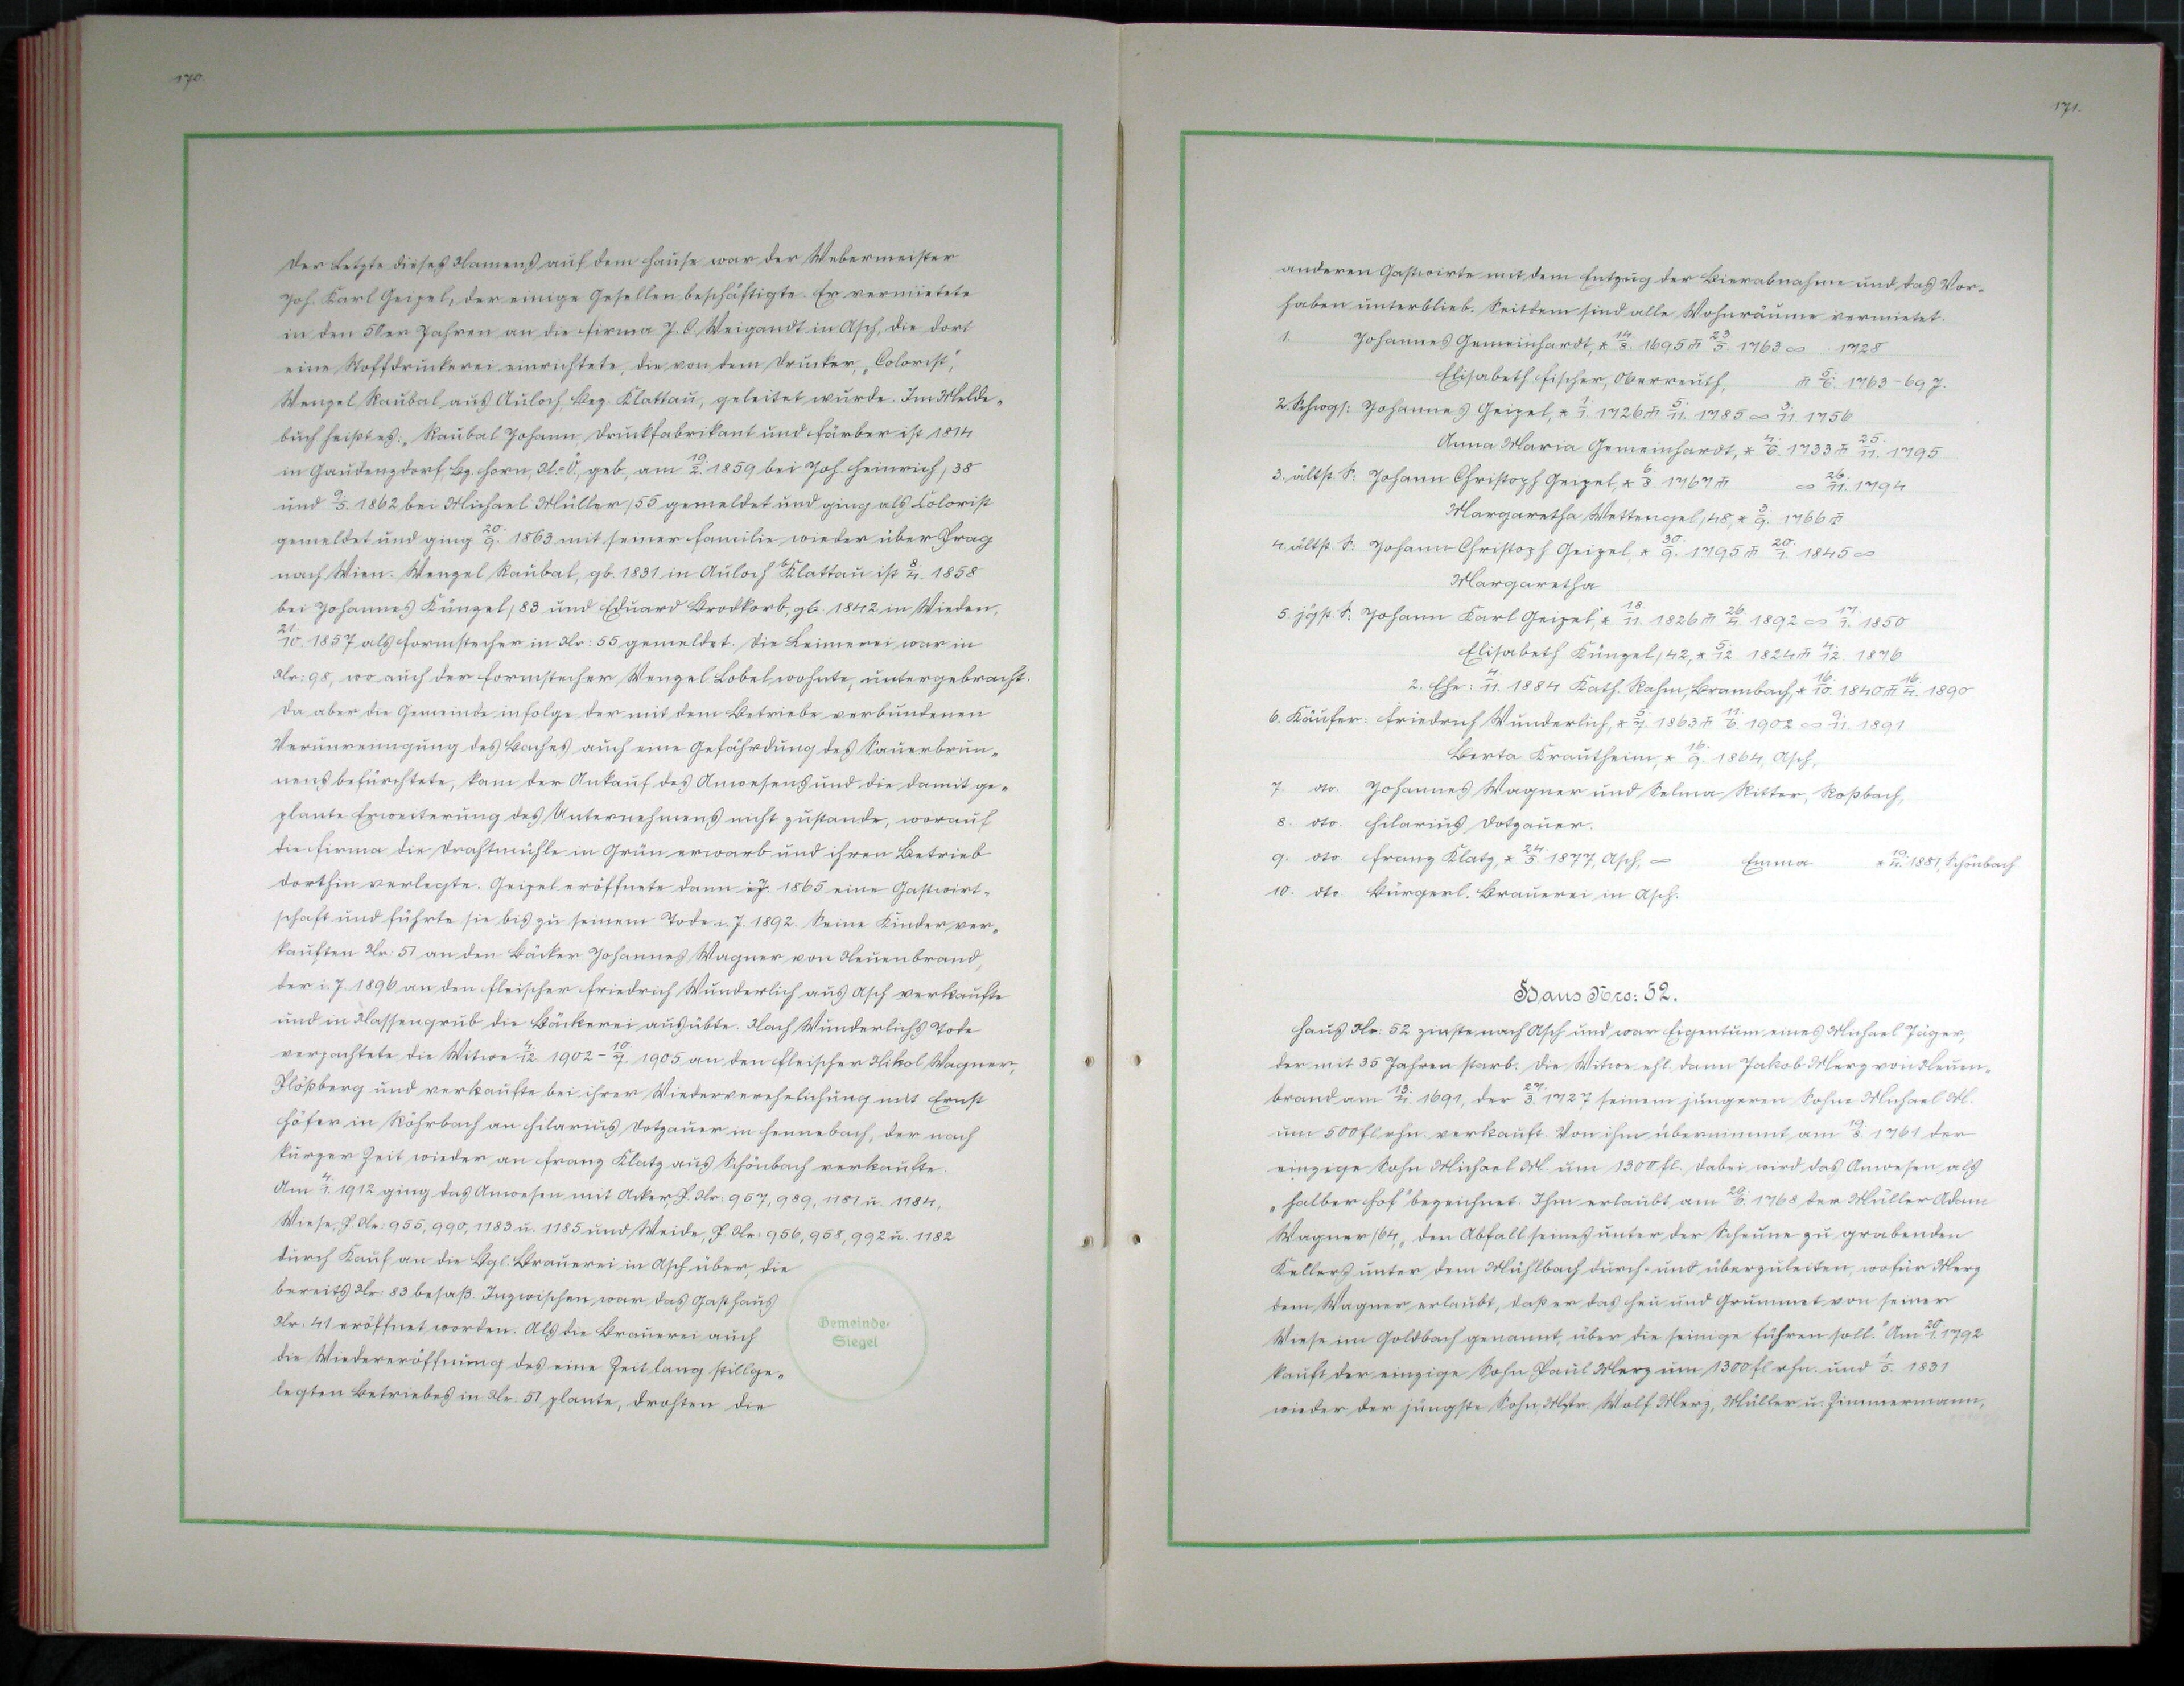 170.
Der Letzte dieses Namens auf dem Hause war der Webermeister
Joh. Karl Geipel, der einige Gesellen beschäftigte. Er vermietete
in den 50er Jahren an die Firma J. C. Weigandt in Asch, die dort
eine Stoffdruckerei einrichtete, die von dem Drucker, „Colorist",
Wenzel Raubal aus Auloch, Bez. Klattau, geleitet wurde. Im Melde-
buch heißt es: „Raubal Johann, Druckfabrikant und Färber ist 1814
in Gaudenzdorf, Bz. Horn, N.-Ö., geb., am 19./2. 1859 bei Joh. Heinrich/38
und 9./5. 1862 bei Michael Müller/55 gemeldet und ging als Colorist
gemeldet und ging 20./9. 1863 mit seiner Familie wieder über Prag
nach Wien. Wenzel Raubal, gb. 1831 in Auloch b. Klattau ist 8./4. 1858
bei Johannes Künzel/83 und Eduard Brodkorb, gb. 1842 in Wieden,
21./10. 1857 als Formstecher in Nr: 55 gemeldet. Die Leimerei war in
Nr: 98, wo auch der Formstecher Wenzel Lobel wohnte, untergebracht.
Da aber die Gemeinde infolge der mit dem Betriebe verbundenen
Verunreinigung des Baches auch eine Gefährdung des Sauerbrun-
nens befürchtete, kam der Ankauf des Anwesens und die damit ge-
plante Erweiterung des Unternehmens nicht zustande, worauf
die Firma die Drahtmühle in Grün erwarb und ihren Betrieb
dorthin verlegte. Geipel eröffnete dann i. J. 1865 eine Gastwirt-
schaft und führte sie bis zu seinem Tode i. J. 1892. Seine Kinder ver-
kauften Nr: 51 an den Bäcker Johannes Wagner von Neuenbrand,
der i. J. 1896 an den Fleischer Friedrich Wunderlich aus Asch verkaufte
und in Nassengrub die Bäckerei ausübte. Nach Wunderlichs Tode
verpachtete die Witwe 4./12. 1902 - 10./7. 1905 an den Fleischer Nikol Wagner,
Plößberg und verkaufte bei ihrer Wiederverehelichung mit Ernst
Höfer in Röhrbach an Hilarius Dotzauer in Hennebach, der nach
kurzer Zeit wieder an Franz Klatz aus Schönbach verkaufte.
Am 4./1. 1912 ging das Anwesen mit Acker, P. Nr: 957, 989, 1181 u. 1184,
Wiese, P. Nr: 955, 990, 1183 u. 1185 und Weide, P. Nr: 956, 958, 992 u. 1182
durch Kauf an die Bgl. Brauerei in Asch über, die
bereits Nr: 83 besaß. Inzwischen war das Gasthaus
Nr: 41 eröffnet worden. Als die Brauerei auch
die Wiedereröffnung des eine Zeit lang stillge-
legten Betriebes in Nr: 51 plante, drohten die
Gemeinde-
Siegel
171.
anderen Gastwirte mit dem Entzug der Bierabnahme und das Vor-
haben unterblieb. Seitdem sind alle Wohnräume vermietet.
1. Johannes Gemeinhardt, * 14./8. 1695 ⚰ 23./5. 1763 ∞ 1728
Elisabeth Fischer, Oberreuth, ⚰ 5./6. 1763 - 69 J.
2. Schwgs: Johannes Geipel, * 1./1. 1726 ⚰ 5./11. 1785 ∞ 9./11. 1756
Anna Maria Gemeinhardt, * 4./6. 1733 ⚰ 25./11. 1795
3. ältst. S: Johann Christoph Geipel, * 6./8. 1767 ⚰ ∞ 26./11. 1794
Margaretha Wettengel/48, * 3./9. 1766 ⚰
4. ältst. S: Johann Christoph Geipel, * 30./9. 1795 ⚰ 20./1. 1845 ∞
Margaretha
5. jgst. S: Johann Karl Geipel, * 18./11. 1826 ⚰ 26./4. 1892 ∞ 17./1. 1850
Elisabeth Künzel/42, * 5./12. 1824 ⚰ 4./12. 1876
2. Ehe: 4./11. 1884 Kath. Rahm, Brambach, * 16./10. 1840 ⚰ 16./4. 1890
6. Käufer: Friedrich Wunderlich, * 5./7. 1863 ⚰ 11./6. 1902 ∞ 9./11. 1891
Berta Krautheim, * 16./9. 1864, Asch,
7. dto. Johannes Wagner und Selma Ritter, Roßbach,
8. dto. Hilarius Dotzauer.
9. dto. Franz Klatz, * 24./5. 1877, Asch, ∞ Emma 1881, Schönbach
10. dto. Bürgerl. Brauerei in Asch.
Haus Nro: 52.
Haus Nr: 52 zinste nach Asch und war Eigentum eines Michael Jäger,
der mit 35 Jahren starb. Die Witwe ehl. dann Jakob Merz von Neuen-
brand am 13./4. 1691, der 27./3. 1727 seinem jüngeren Sohne Michael M.
um 500 fl rhn. verkauft. Von ihm übernimmt am 19./8. 1761 der
einzige Sohn Michael M. um 1300 fl. Dabei wird das Anwesen als
„halber Hof" bezeichnet. Ihm erlaubt am 29./6. 1768 der Müller Adam
Wagner/64, „den Abfall seines unter der Scheune zu grabenden
Kellers unter dem Mühlbach durch- und überzuleiten, wofür Merz
dem Wagner erlaubt, daß er das Heu und Grummet von seiner
Wiese im Goldbach genannt, über die seinige führen soll." Am 20./1. 1792
kauft der einzige Sohn Paul Merz um 1300 fl rhn. und 1./5. 1831
wieder der jüngste Sohn, Mstr. Wolf Merz, Müller u. Zimmermann,